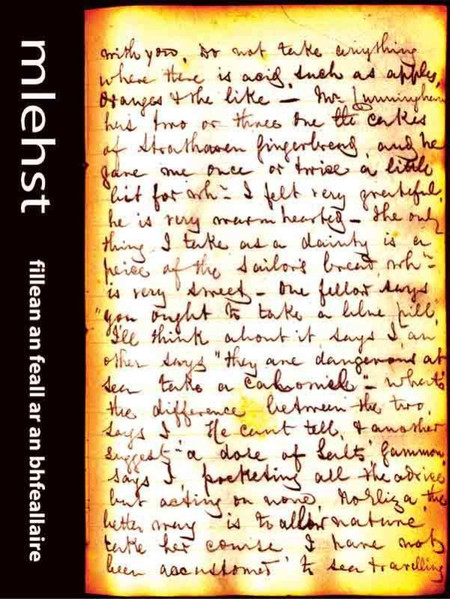 mlehst
fillean an feall ar an bhfeallaire
with you, Do not take anything
where there is acid, such as apples,
oranges & the like — Mr Cunningham
has two or three one lb cakes
of Strathaven gingerbread, and he
gave me once or twice a little
bit for wh— I felt very grateful,
he is very warm hearted — The only
thing I take as a dainty is a
peice of the sailors bread, wh—
is very sweet — One fellow says
"you ought to take a blue pill,"
I'll think about it says I, an
other says "they are dangerous at
sea take a calomile" — what's
the difference between the two,
says I, He can't tell, & another
suggests "a dose of Salts" Gammon,
says I, pocketing all the advice
but acting on none. No Eliza, the
better way is to allow nature
take her course I have not
been accustomed to sea travelling